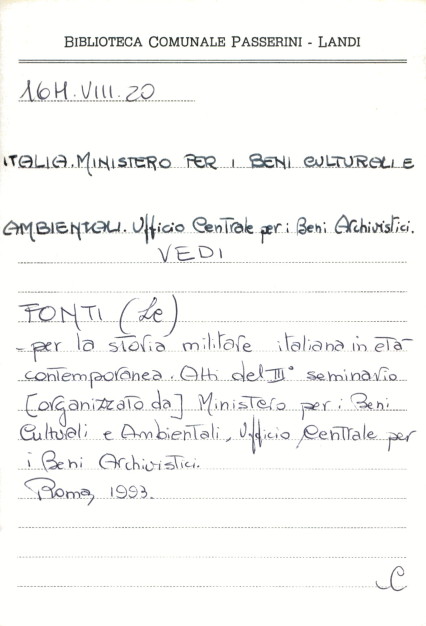 BIBLIOTECA COMUNALE PASSERINI - LANDI
16H.VIII.20
ITALIA.MINISTERO PER I BENI CULTURALI E
AMBIENTALI. Ufficio Centrale per i Beni Archivistici.
VEDI
FONTI (Le)
- per la storia militare italiana in età
contemporanea. Atti del III° seminario
[organizzato da] Ministero per i Beni
Culturali e Ambientali, Ufficio Centrale per
i Beni Archivistici.
Roma, 1993.
C